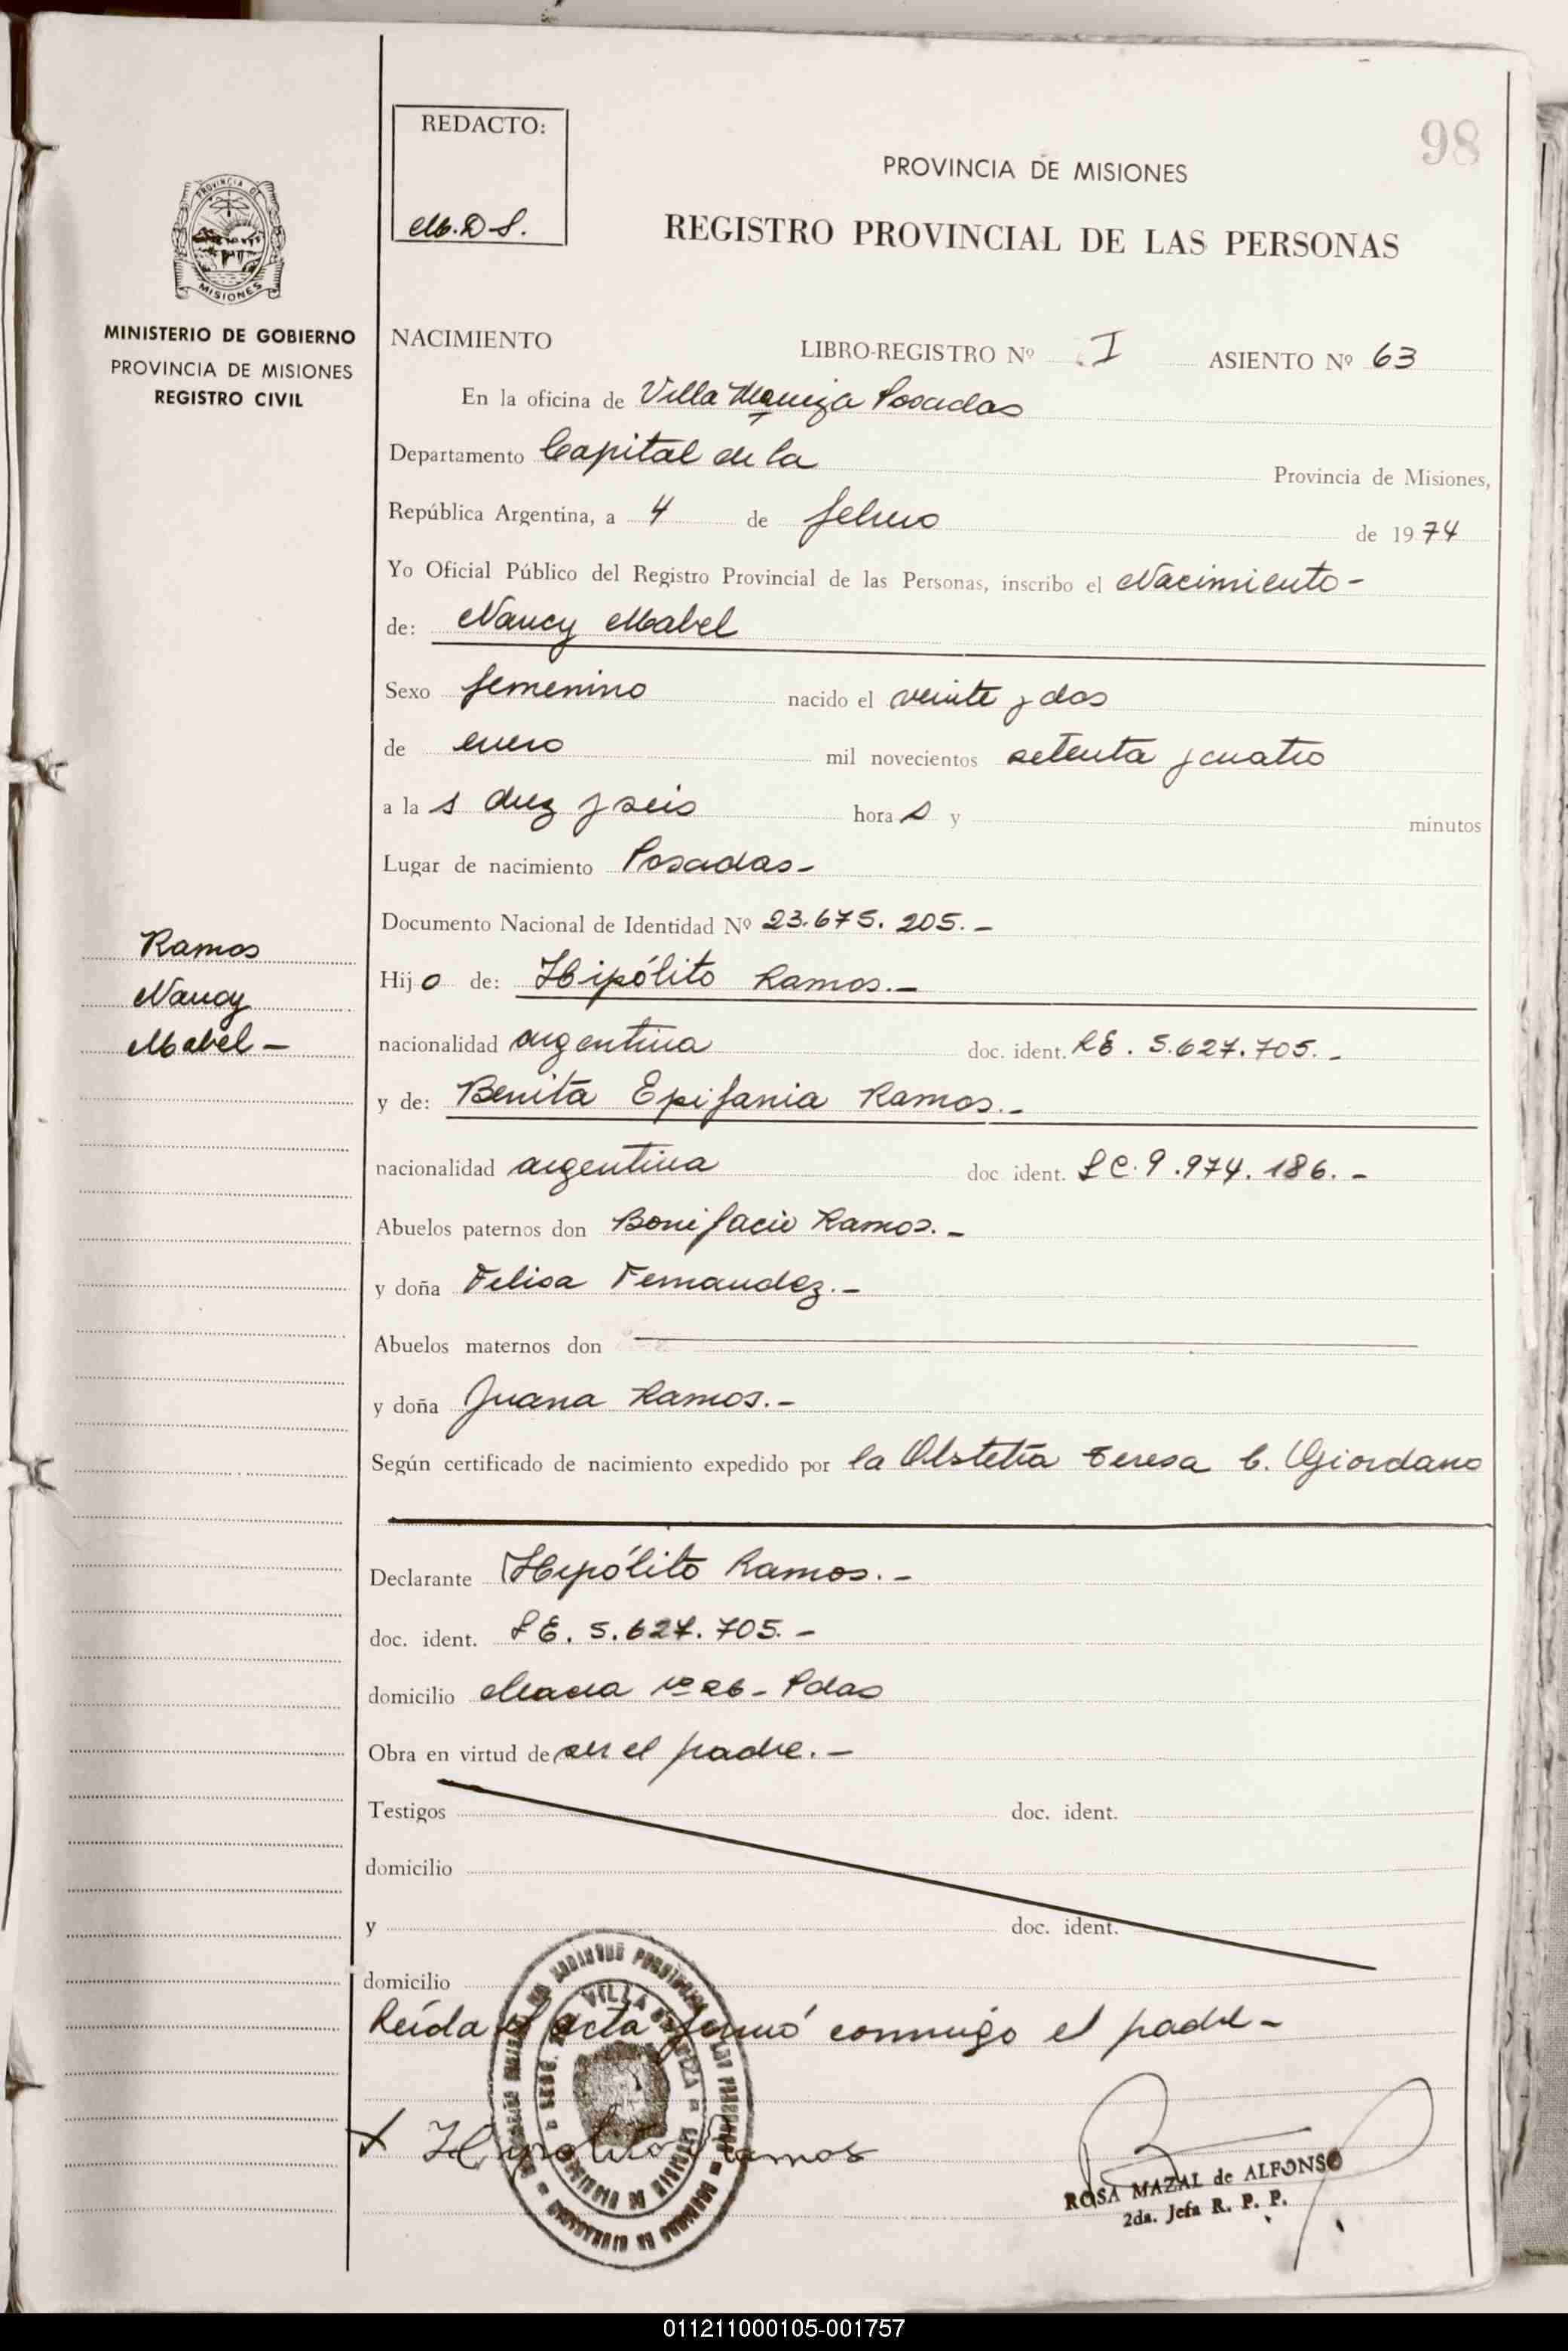 98
REDACTO:
M.D.S.
PROVINCIA DE MISIONES
REGISTRO PROVINCIAL DE LAS PERSONAS
PROVINCIA DE
MISIONES
MINISTERIO DE GOBIERNO
PROVINCIA DE MISIONES
REGISTRO CIVIL
NACIMIENTO LIBRO-REGISTRO Nº I ASIENTO Nº 63
En la oficina de Villa Urquiza Posadas
Departamento Capital de la Provincia de Misiones,
República Argentina, a 4 de febrero de 1974
Yo Oficial Público del Registro Provincial de las Personas, inscribo el Nacimiento -
de: Nancy Mabel
Sexo femenino nacido el veinte y dos
de enero mil novecientos setenta y cuatro
a la s diez y seis hora s y minutos
Lugar de nacimiento Posadas -
Documento Nacional de Identidad Nº 23.675.205. -
Ramos
Nancy
Mabel -
Hijo de: Hipólito Ramos. -
nacionalidad argentina doc. ident. LE. 5.627.705. -
y de: Benita Epifania Ramos. -
nacionalidad argentina doc. ident. LC. 9.974.186. -
Abuelos paternos don Bonifacio Ramos. -
y doña Felisa Fernandez. -
Abuelos maternos don
y doña Juana Ramos. -
Según certificado de nacimiento expedido por la Obstetra Teresa C. Giordano
Declarante Hipólito Ramos. -
doc. ident. LE. 5.627.705. -
domicilio Nº 26 - Pdas
Obra en virtud de ser el padre. -
Testigos doc. ident.
domicilio
y doc. ident.
domicilio
Leída el acta firmó conmigo el padre -
x Hipolito Ramos
ROSA MAZAL de ALFONSO
2da. Jefa R. P. P.
011211000105-001757